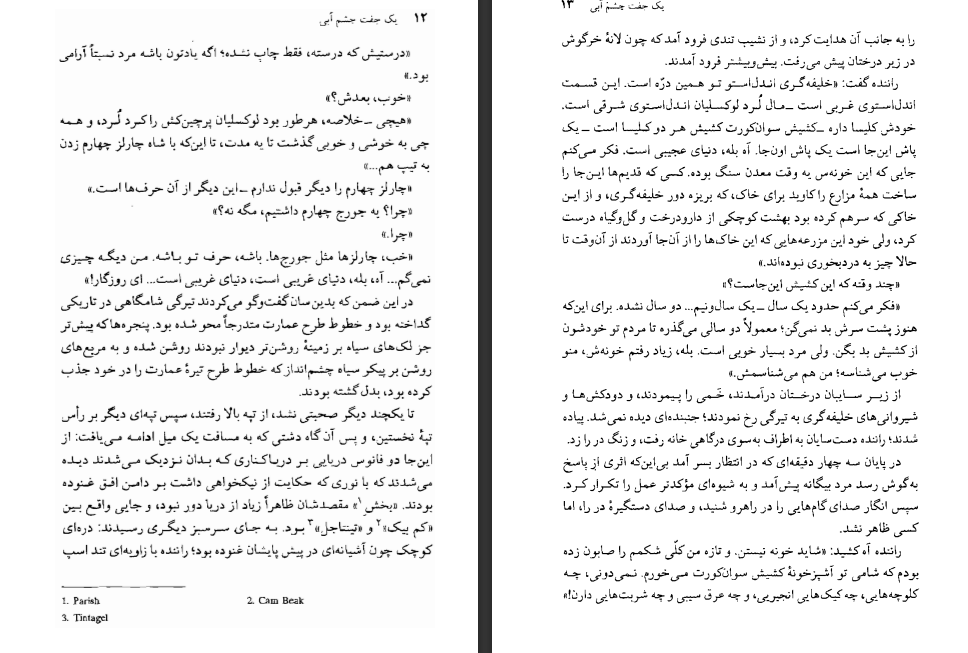 ۱۲ یک جفت چشم آبی
«درستیش که درسته، فقط چاپ نشده؛ اگه یادتون باشه مرد نسبتاً آرامی
بود.»
«خوب، بعدش؟»
«هیچی ــ خلاصه، هرطور بود لوکسلیان پرچین‌کش را کرد لُرد، و همه
چی به خوشی و خوبی گذشت تا یه مدت، تا این‌که با شاه چارلز چهارم زدن
به تیپ هم...»
«چارلز چهارم را دیگر قبول ندارم ــ این دیگر از آن حرف‌ها است.»
«چرا؟ یه جورج چهارم داشتیم، مگه نه؟»
«چرا.»
«خب، چارلزها مثل جورج‌ها. باشه، حرف تو باشه. من دیگه چیزی
نمی‌گم... آه، بله، دنیای غریبی است، دنیای غریبی است... ای روزگار!»
در این ضمن که بدین‌سان گفت‌وگو می‌کردند تیرگی شامگاهی در تاریکی
گداخته بود و خطوط طرح عمارت متدرجاً محو شده بود. پنجره‌ها که پیش‌تر
جز لک‌های سیاه بر زمینهٔ روشن‌تر دیوار نبودند روشن شده و به مربع‌های
روشن بر پیکر سیاه چشم‌انداز که خطوط طرح تیرهٔ عمارت را در خود جذب
کرده بود، بدل گشته بودند.
تا یکچند دیگر صحبتی نشد، از تپه بالا رفتند، سپس تپه‌ای دیگر بر رأس
تپهٔ نخستین، و پس آن گاه دشتی که به مسافت یک میل ادامه می‌یافت: از
این‌جا دو فانوس دریایی بر دریاکناری که بدان نزدیک می‌شدند دیده
می‌شدند که با نوری که حکایت از نیکخواهی داشت بر دامن افق غنوده
بودند. «بخش۱» مقصدشان ظاهراً زیاد از دریا دور نبود، و جایی واقع بین
«کم بیک»۲ و «تینتاجل»۳ بود. به جای سرسبز دیگری رسیدند: دره‌ای
کوچک چون آشیانه‌ای در پیش پایشان غنوده بود؛ راننده با زاویه‌ای تند اسپ
1. Parish 2. Cam Beak
3. Tintagel
یک جفت چشم آبی ۱۳
را به جانب آن هدایت کرد، و از نشیب تندی فرود آمد که چون لانهٔ خرگوش
در زیر درختان پیش می‌رفت. بیش‌وبیشتر فرود آمدند.
راننده گفت: «خلیفه‌گری اندل‌استو تو همین درّه است. این قسمت
اندل‌استوی غربی است ــ مال لُرد لوکسلیان اندل‌استوی شرقی است.
خودش کلیسا داره ــ کشیش سوان‌کورت کشیش هر دو کلیسا است ــ یک
پاش این‌جا است یک پاش اون‌جا. آه بله، دنیای عجیبی است. فکر می‌کنم
جایی که این خونه‌س یه وقت معدن سنگ بوده. کسی که قدیم‌ها این‌جا را
ساخت همهٔ مزارع را کاوید برای خاک، که بریزه دور خلیفه‌گری، و از این
خاکی که سرهم کرده بود بهشت کوچکی از دارودرخت و گل‌وگیاه درست
کرد، ولی خود این مزرعه‌هایی که این خاک‌ها را از آن‌جا آوردند از آن‌وقت تا
حالا چیز به دردبخوری نبوده‌اند.»
«چند وقته که این کشیش این‌جاست؟»
«فکر می‌کنم حدود یک سال ــ یک سال‌ونیم... دو سال نشده. برای این‌که
هنوز پشت سرش بد نمی‌گن؛ معمولاً دو سالی می‌گذره تا مردم تو خودشون
از کشیش بد بگن. ولی مرد بسیار خوبی است. بله، زیاد رفتم خونه‌ش، منو
خوب می‌شناسه؛ من هم می‌شناسمش.»
از زیر سایبان درختان درآمدند، خَمی را پیمودند، و دودکش‌ها و
شیروانی‌های خلیفه‌گری به تیرگی رخ نمودند؛ جنبنده‌ای دیده نمی‌شد. پیاده
شدند؛ راننده دست‌سایان به اطراف به‌سوی درگاهی خانه رفت، و زنگ در را زد.
در پایان سه چهار دقیقه‌ای که در انتظار بسر آمد بی‌این‌که اثری از پاسخ
به‌گوش رسد مرد بیگانه پیش‌آمد و به شیوه‌ای مؤکدتر عمل را تکرار کرد.
سپس انگار صدای گام‌هایی را در راهرو شنید، و صدای دستگیرهٔ در را، اما
کسی ظاهر نشد.
راننده آه کشید: «شاید خونه نیستن. و تازه من کلّی شکمم را صابون زده
بودم که شامی تو آشپزخونهٔ کشیش سوان‌کورت می‌خورم. نمی‌دونی، چه
کلوچه‌هایی، چه کیک‌هایی انجیریی، و چه عرق سیبی و چه شربت‌هایی دارن!»